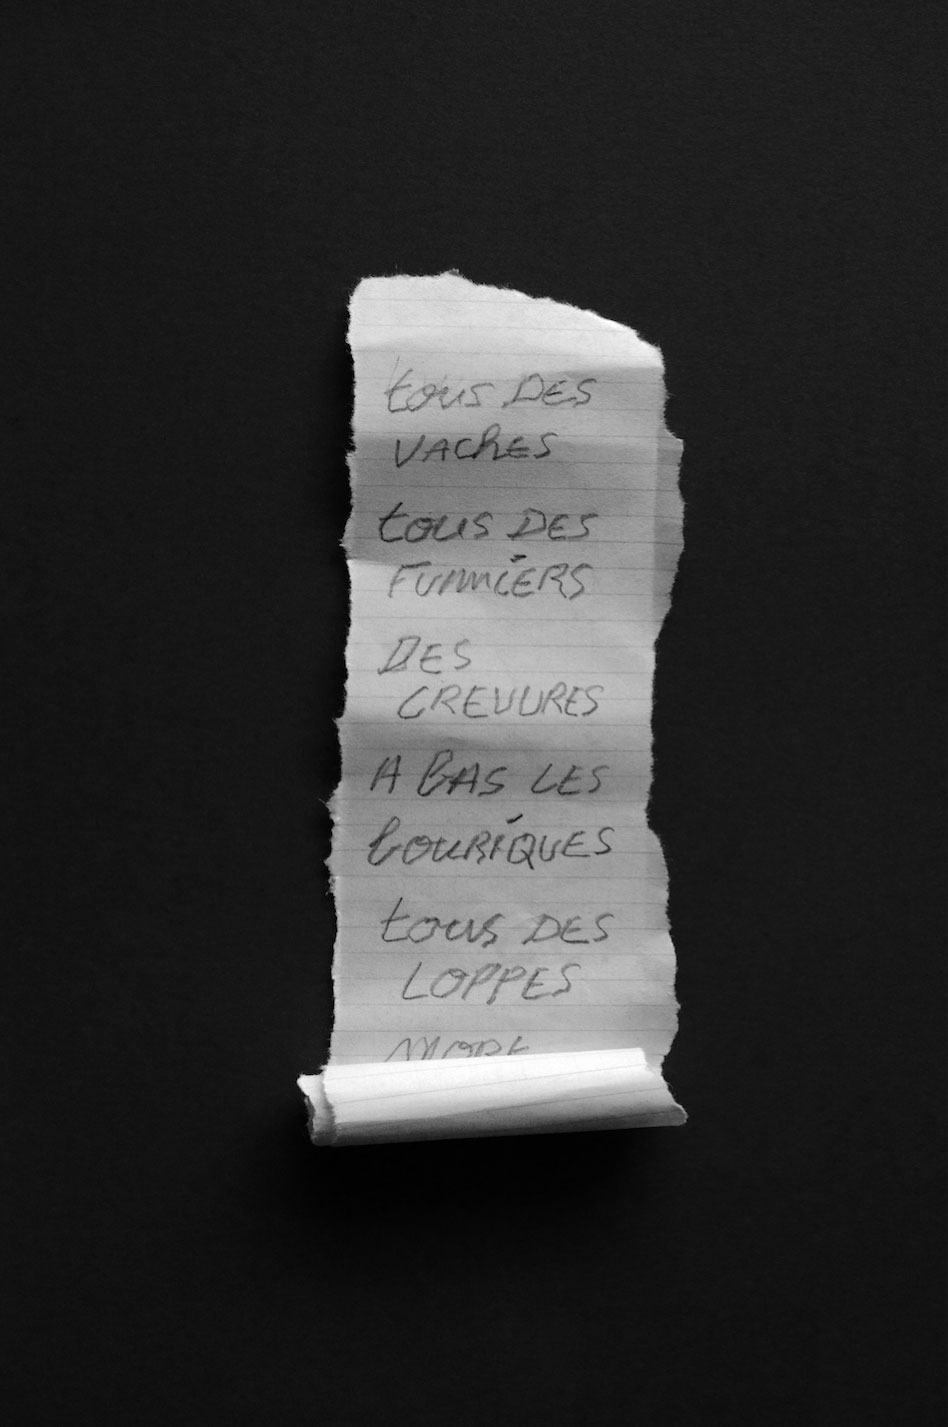 tous DES
VACHES
tous DES
FUMMIERS
DES
CREVURES
A BAS LES
BOURIQUES
tous DES
LOPPES